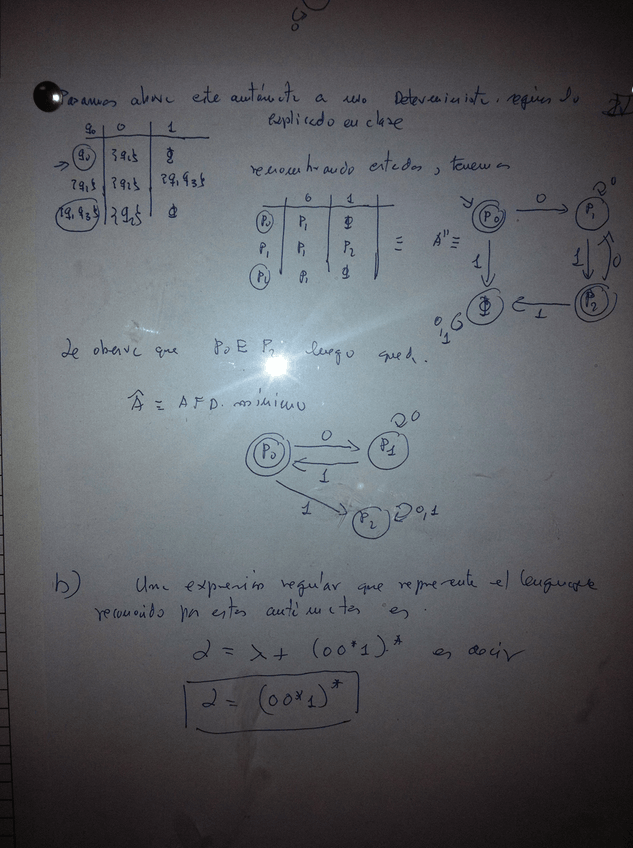 Pasamos ahora este autómata a uno Determinista, según lo
explicado en clase
q0 | 0 | 1
→ q0 | {q2} | Φ
{q2} | {q2} | {q1,q3}
{q1,q3} | {q2} | Φ
renombrando estados, tenemos
0 | 1
P0 | P1 | Φ
P1 | P1 | P2
P2 | P1 | Φ
≡ A'' ≡
P0 0 P1 0
1 1 0
0,1 Φ 1 P2
Se observa que P0 E P2 luego queda.
Â ≡ AFD. mínimo
0
P0 0 P1
1
1 P2 0,1
b) Una expresión regular que represente el lenguaje
reconocido por estos autómatas es.
α = λ + (00*1).* es decir
α = (00*1)*